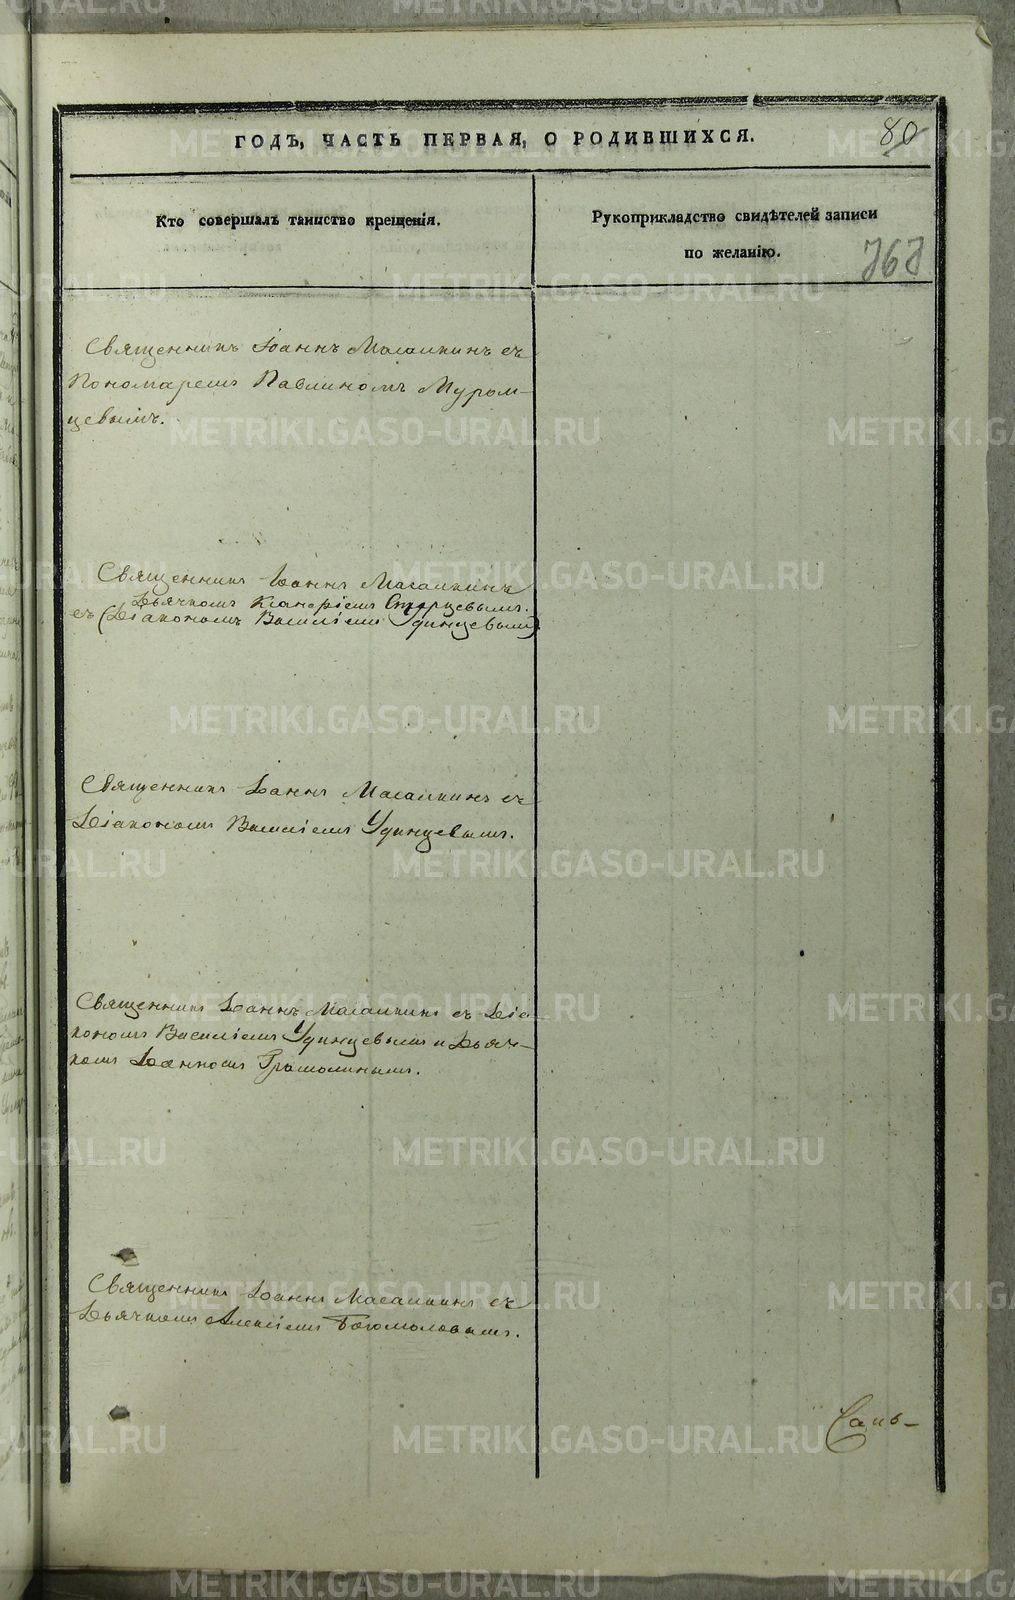 ГОДЪ, ЧАСТЬ ПЕРВАЯ, О РОДИВШИХСЯ.
80
Кто совершалъ таинство крещенія.
Рукоприкладство свидѣтелей записи
по желанію.
Священникъ Іоаннъ Масалкинъ съ
Пономаремъ Павлиномъ Муром-
цевымъ.
Священникъ Іоаннъ Масалкинъ
Дьячкомъ Старцевымъ.
съ (Діакономъ Василіемъ Удинцевымъ)
Священникъ Іоаннъ Масалкинъ съ
Діакономъ Василіемъ Удинцевымъ.
Священникъ Іоаннъ Масалкинъ съ Діа
кономъ Василіемъ Удинцевымъ и Дьяч-
комъ Іоанномъ
Священникъ Іоаннъ Масалкинъ съ
Дьячкомъ Алексіемъ Богомоловымъ.
METRIKI.GASO-URAL.RU